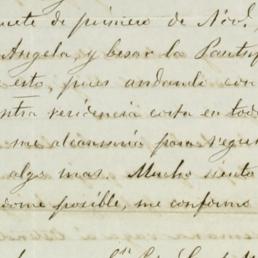 nete de primero de Nov.
Angela, y besar la Pantuf
esto, pues andando con
ntra residencia corta en tod
me alcansaria para regu
algo mas. Mucho siento
dome posible, me conformo